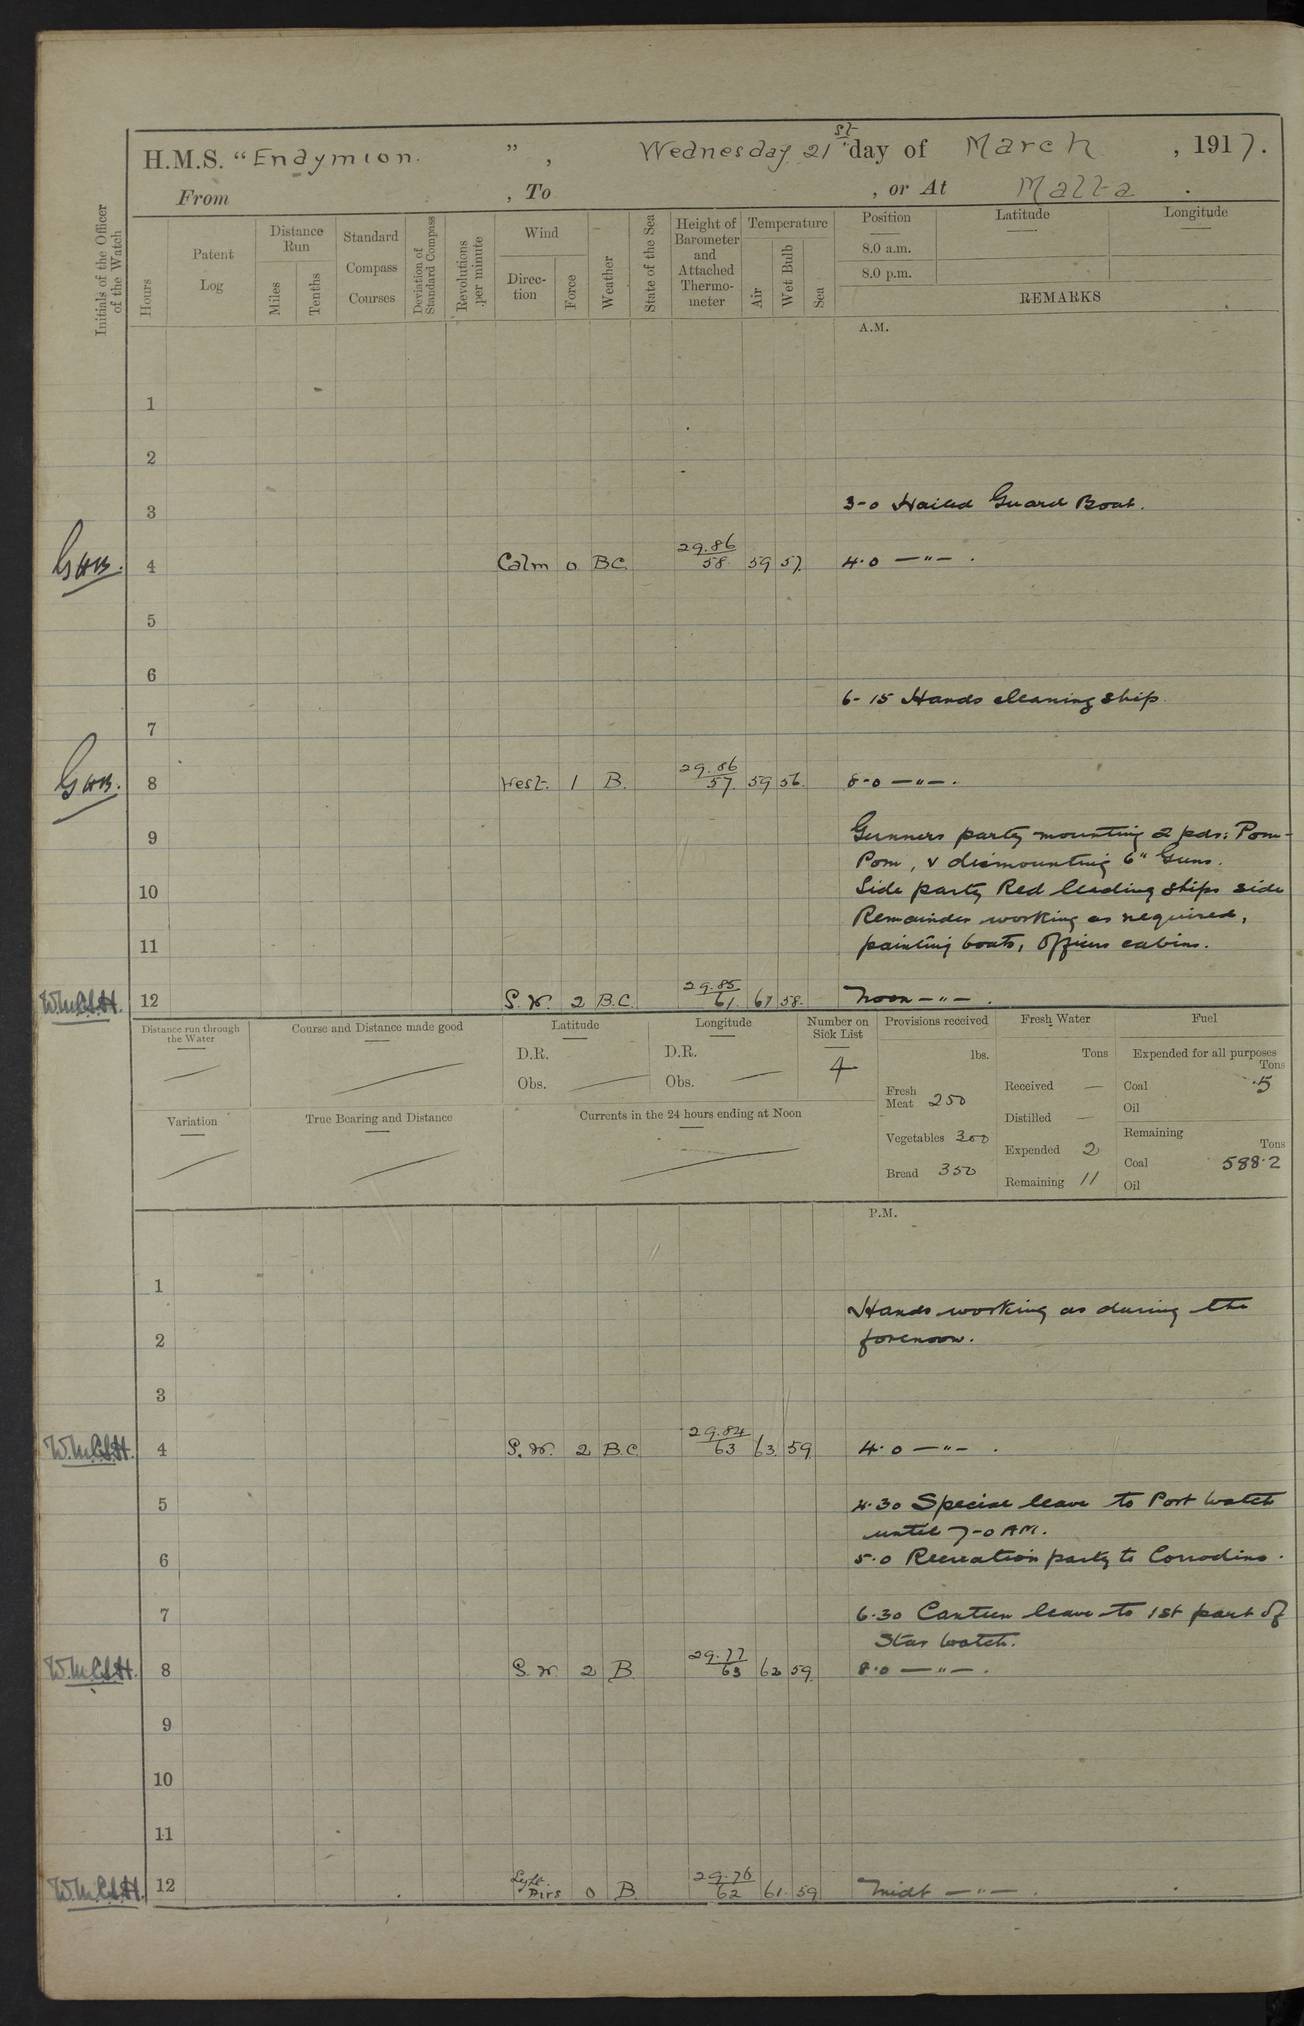 H.M.S. "Endymion. ", Wednesday 21st day of March, 1917.
From , To , or At Malta.
Initials of the Officer of the Watch
Hours
Patent Log
Distance Run
Miles
Tenths
Standard Compass Courses
Deviation of Standard Compass
Revolutions per minute
Wind
Direction
Force
Weather
State of the Sea
Height of Barometer and Attached Thermometer
Temperature
Air
Wet Bulb
Sea
Position Latitude Longitude
8.0 a.m.
8.0 p.m.
REMARKS
A.M.
1
2
3 3-0 Hailed Guard Boat.
4 Calm 0 BC 29.86/58 59 57 4.0 —"— .
5
6
6-15 Hands cleaning ship.
7
8 West. 1 B. 29.86/57. 59 56 8-0 —"— .
9 Gunners party mounting 2 pdr: Pom-
Pom, & dismounting 6" Guns.
10 Side party Red leading ships side
Remainder working as required,
11 painting boats, Officers cabins.
12 S.W. 2 B.C. 29.85/61 67 58. Noon —"— .
Distance run through the Water
Course and Distance made good
Latitude
D.R.
Obs.
Longitude
D.R.
Obs.
Number on Sick List
4
Provisions received
lbs.
Fresh Meat 250
Vegetables 300
Bread 350
Fresh Water
Tons
Received —
Distilled —
Expended 2
Remaining 11
Fuel
Expended for all purposes
Tons
Coal .5
Oil
Remaining
Tons
Coal 588.2
Oil
Variation
True Bearing and Distance
Currents in the 24 hours ending at Noon
P.M.
1
Hands working as during the
2 forenoon.
3
4 S.W. 2 B.C. 29.84/63 63 59 4.0 —"— .
5 4.30 Special leave to Port Watch
until 7-0 AM.
6 5.0 Recreation party to Corrodino.
7 6.30 Canteen leave to 1st part of
Star Watch.
8 S.W. 2 B 29.77/63 62 59 8.0 —"— .
9
10
11
12 Lyht. Airs 0 B 29.76/62 61 59 Midt —"— .